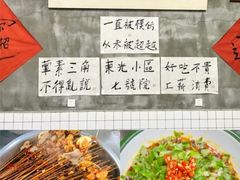 一直被模仿
从未被超越
荤素三角
不得乱说
东光小区
七号院
好吃不贵
工薪消费